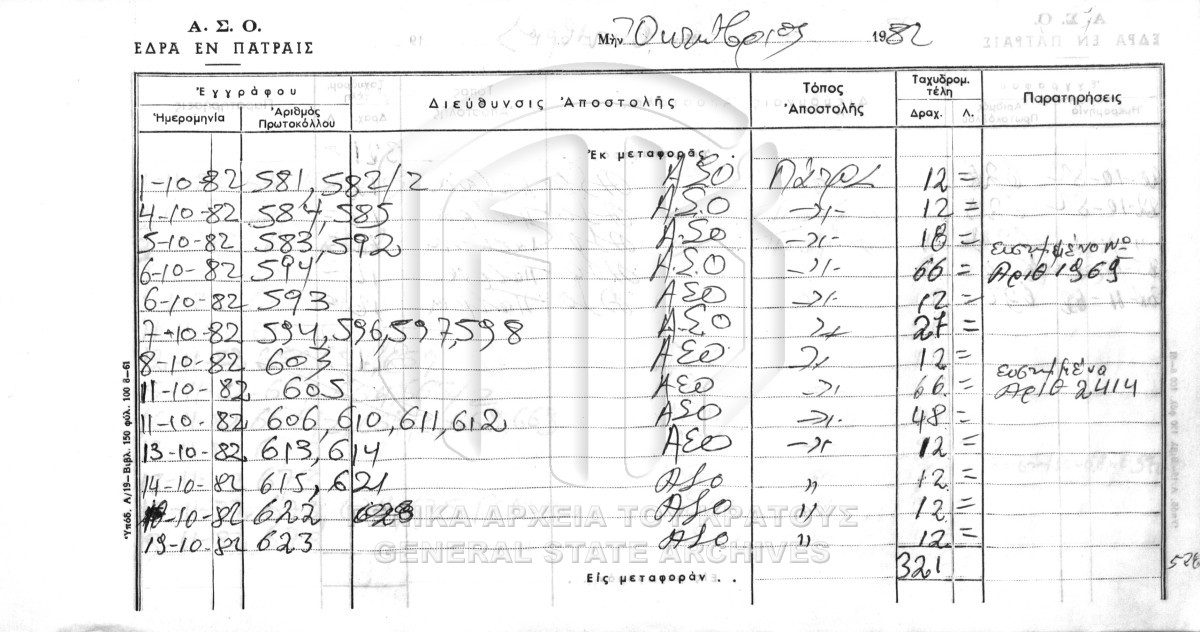 Α. Σ. Ο.
ΕΔΡΑ ΕΝ ΠΑΤΡΑΙΣ
Μὴν Οκτώβριος 1982
Ἐγγράφου
Ἡμερομηνία Ἀριθμὸς Πρωτοκόλλου Διεύθυνσις Ἀποστολῆς Τόπος Ἀποστολῆς Ταχυδρομ. τέλη Δραχ. Λ. Παρατηρήσεις
Ἐκ μεταφορᾶς . .
1-10-82 581, 582/2 ΑΣΟ Πάτρα 12 =
4-10-82 584, 585 Α.Σ.Ο -〃- 12 =
5-10-82 583, 592 Α.Σο -〃- 18 =
6-10-82 594 Α.Σ.Ο -〃- 66 = συστημένο Νο Αριθ 1969
6-10-82 593 ΑΣΟ -〃- 12 =
7-10-82 594, 596, 597, 598 Α.Σ.Ο 〃 27 =
8-10-82 603 ΑΣΟ 〃 12 =
11-10-82 605 ΑΣΟ -〃 66 = συστημένο Αριθ 2414
11-10-82 606, 610, 611, 612 ΑΣΟ -〃- 48 =
13-10-82 613, 614 ΑΣΟ -〃 12 =
14-10-82 615, 621 ΑΣΟ 〃 12 =
-10-82 622 ΑΣΟ 〃 12 =
19-10-82 623 ΑΣΟ 〃 12 =
321
Εἰς μεταφοράν . .
Ὑπόδ. Α/19—Βιβλ. 150 φύλ. 100 8—61
ΓΕΝΙΚΑ ΑΡΧΕΙΑ ΤΟΥ ΚΡΑΤΟΥΣ
GENERAL STATE ARCHIVES